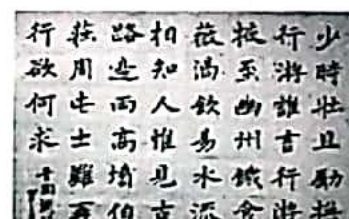 少時壯且勵撫
行游誰言行
掖至幽州饑食
薇渴飲易水流
相知人惟見古
路邊兩高墳伯
莊周此士難再
行欲何求